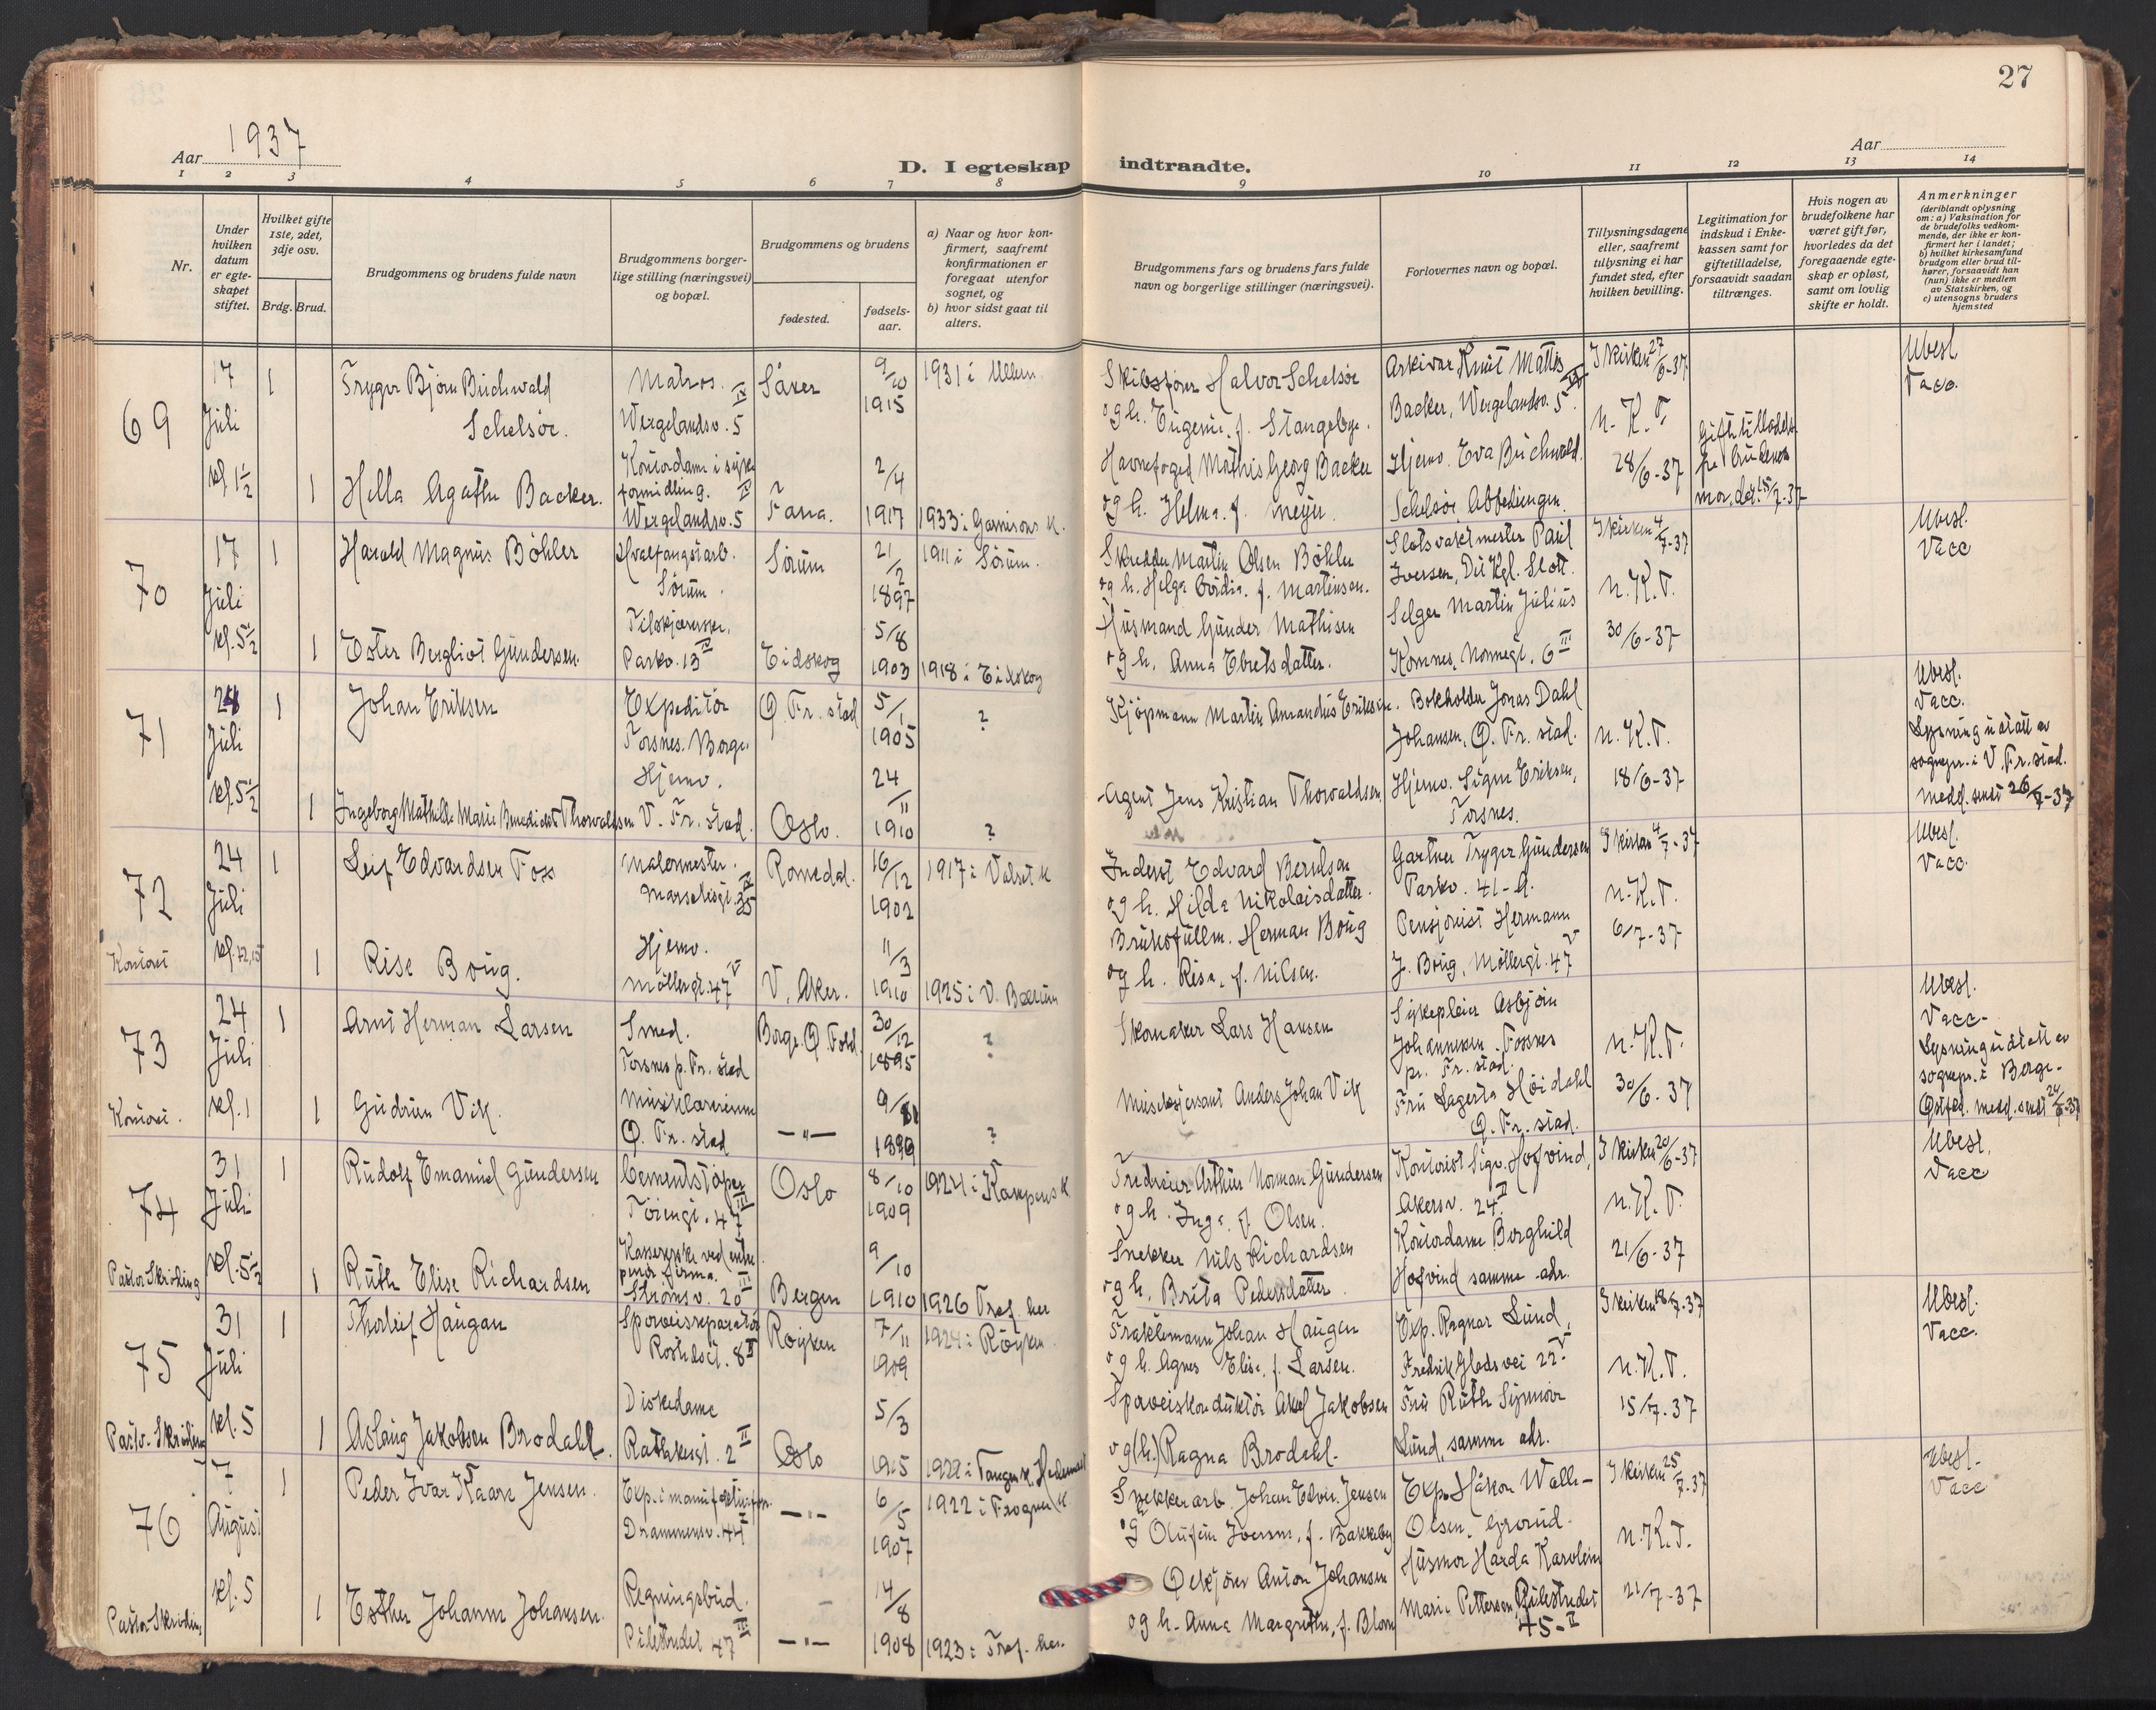 27
Aar 1937
Aar
D. I egteskap indtraadte.
1 2 3 4 5 6 7 8 9 10 11 12 13 14
Nr.
Under hvilken datum er egteskapet stiftet.
Hvilket gifte 1ste, 2det, 3dje osv.
Brdg. Brud.
Brudgommens og brudens fulde navn
Brudgommens borgerlige stilling (næringsvei) og bopæl.
Brudgommens og brudens
fødested.
fødselsaar.
a) Naar og hvor konfirmert, saafremt konfirmationen er foregaat utenfor sognet, og
b) hvor sidst gaat til alters.
Brudgommens fars og brudens fars fulde navn og borgerlige stillinger (næringsvei).
Forlovernes navn og bopæl.
Tillysningsdagene eller, saafremt tillysning ei har fundet sted, efter hvilken bevilling.
Legitimation for indskud i Enkekassen samt for giftetilladelse, forsaavidt saadan tiltrænges.
Hvis nogen av brudefolkene har været gift før, hvorledes da det foregaaende egteskap er opløst, samt om lovlig skifte er holdt.
Anmerkninger
(deriblandt oplysning om: a) Vaksination for de brudefolks vedkommende, der ikke er konfirmert her i landet;
b) hvilket kirkesamfund brudgom eller brud tilhører, forsaavidt han (hun) ikke er medlem av Statskirken, og
c) utensogns bruders hjemsted
69 17 Juli kl. 1½
1 Trygve Bjørn Buchwald Schelsøe. Matros. Wergelandsv. 5 IV 9/10 1915 1931 i Ullern
Skibsfører Halvor Schelsøe og h. Eugenie f. Stangebye.
Arkivar Knut Mathis Backer, Wergelandsv. 5 IV.
I kirken 27/6-37 n. K. T. 28/6-37
Ubesl. Vacc.
1 Hella Agathe Backer. Kontordame i Wergelandsv. 5 IV Fana. 2/4 1917 1933 i Garnisons k.
Havnefoged Mathis Georg Backer og h. Helma f. Meyer.
Hjemv. Eva Buchwald Schelsøe
fra brudens mor, dat. 15/7-37
70 17 Juli kl. 5½
1 Harald Magnus Bøhler Hvalfangstarb. Sørum. Sørum 21/2 1897 1911 i Sørum.
Skredder Martin Olsen Bøhler og h. Helga f. Martinsen.
Slotsvaktmester Paul Iversen, Det Kgl. Slott.
I kirken 4/7-37 n. K. T. 30/6-37
Ubesl. Vacc
1 Ester Bergliot Gundersen. Parkv. 13 IV Eidskog 5/8 1903 1918 i Eidskog
Husmand Gunder Mathisen og h. Anna Ebretsdatter.
Selger Martin Julius Komnes, Normegt. 6 III
71 24 Juli kl. 5½
1 Johan Eriksen Expeditør Torsnes. Borge. Ø. Fr. stad 5/1 1905 ?
Kjøpmann Martin Amandus Eriksen.
Bokholder Jonas Dahl Johansen, Ø. Fr. stad.
n. K. T. 18/6-37
Ubesl. Vacc. Lysning utstatt av sogнepr. i V. Fr. stad. Medd. sendt 26/7-37
1 Ingeborg Mathilde Marie Benedicte Thorvaldsen Hjemv. V. Fr. stad. Oslo. 24/11 1910 ?
Agent Jens Kristian Thorvaldsen
Hjemv. Signe Eriksen, Torsnes.
72 24 Juli kl. 12,15 Kontoret
1 Leif Edvardsen Foss Malermester. Marselisgt. 35 IV Romedal. 16/12 1902 1917 i Vålset k
Inderst Edvard Berntsen og h. Hilda Nikolaisdatter.
Gartner Trygve Gundersen Parkv. 41-A.
I kirken 4/7-37 n. K. T. 6/7-37
Ubesl. Vacc.
1 Rise Boug. Hjemv. Møllergt. 47 V V. Aker. 11/3 1910 1925 i V. Bærum
Bruksfullm. Herman Boug og h. Risa, f. Nilsen.
Pensjonist Hermann J. Boug, Møllergt. 47 V
73 24 Juli kl. 1 Kontoret.
1 Arnt Herman Larsen Smed. Torsnes p. Fr. stad Borge. Ø Fold. 30/12 1895 ?
Skomaker Lars Hansen
Sykepleier Asbjørn Johannesen. Torsnes pr. Fr. stad.
n. K. T. 30/6-37
Ubesl. Vacc. Lysning utstatt av sognepr. i Borge. Østfd. medd. sendt
1 Gudrun Vik. Musiklærerinne Ø. Fr. stad —"— ?
Musiksjersant Anders Johan Vik
Fru Lagerta Høidahl Ø. Fr. stad.
74 31 Juli kl. 5½ Pastor Skriding
1 Rudolf Emanuel Gundersen Cementstøper Tøiengt. 47 III Oslo 8/10 1909 1924 i Kampens k
Arthur Norman Gundersen og h. Inga f. Olsen.
Kontorist Sigv. Hofvind, Akersv. 24 II
I kirken 20/6-37 n. K. T. 21/6-37
Ubesl. Vacc
1 Ruth Elise Richardsen firma. Strømsv. 20 III Bergen 9/10 1910 1926 Tref. her
Snekker Nils Richardsen og h. Brita Pedersdatter.
Kontordame Borghild Hofvind samme adr.
75 31 Juli kl. 5 Pastor Skriding
1 Thorleif Haugan Sporveisreparatør 8 II Røyken 7/11 1909 1924 i Røyken.
Johan Haugen og h. Agnes Elise, f. Larsen.
Exp. Ragnar Lund, Fredrik Glads vei 22 V
I kirken 18/7-37 n. K. T. 15/7-37
Ubesl. Vacc.
1 Aslaug Jakobsen Brodahl. Diskedame Rathkesgt. 2 II Oslo 5/3 1915
Sporveiskonduktør Axel Jakobsen og (h.) Ragna Brodahl.
Fru Ruth Synnøve Lund, samme adr.
76 7 August kl. 5 Pastor Skriding
1 Peder Ivar Kaare Jensen. Exp. i Drammensv. 44 —"— 6/5 1907 1922 i Frogner k
Snekkerarb. Johan Edvin Jensen og Olufine Iversen, f. Bakkeby
Exp. Håkon Walle-Olsen, Grorud.
I kirken 25/7-37 n. K. T. 21/7-37
Ubesl. Vacc
1 Esther Johanne Johansen. Regningsbud. Pilestredet 47 III —"— 14/8 1908 1923 i Tref. her.
Anton Johansen og h. Anna Margrethe, f. Blom
Husmor Harda Karoline Marie Pettersen, Pilestredet 45-II